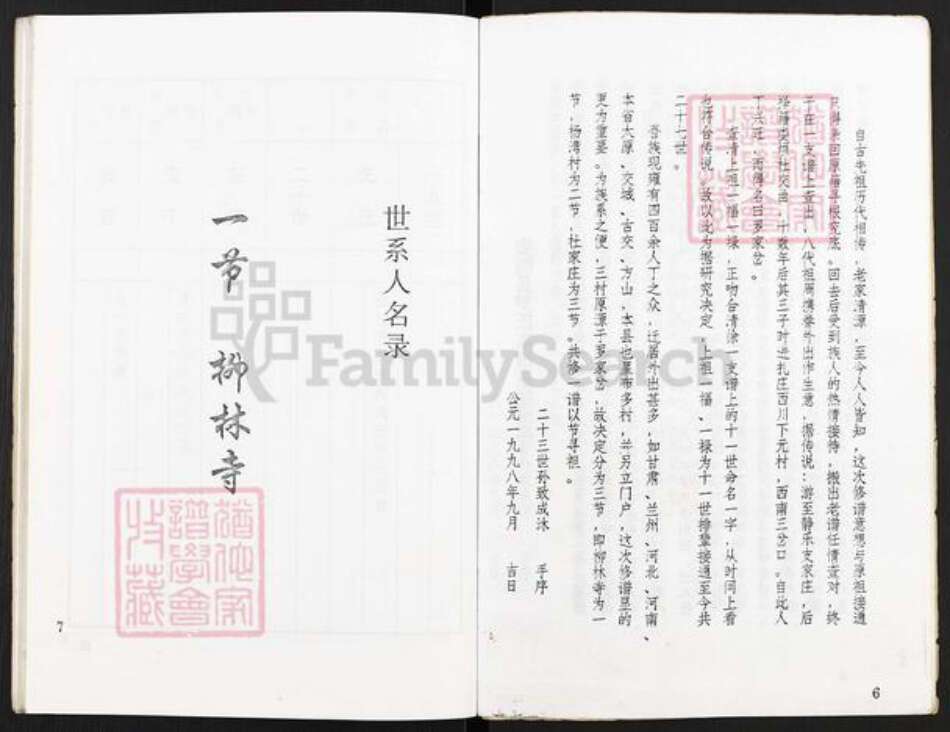 自古先祖历代相传，老家清源，至今人人皆知，这次修谱意想与原祖接通
只得亲回原籍寻根究底。回去后受到族人的热情接待，搬出老谱任情查对，终
于在一支谱上查出，八代祖周携眷外出作生意，据传说：游至静乐支家庄，后
杜交曲，十数年后其三子时进扎庄西川下元村，西南三岔口。自此人
丁兴旺，而得名曰罗家岔。
查清上祖一福一禄，正吻合清徐一支谱上的十一世命名一字，从时间上看
也符合传说。故以此为据研究决定，上祖一福、一禄为十一世排辈接通至今共
二十七世。
吾族现拥有四百余人丁之众，迁居外出甚多，如甘肃、兰州、河北、河南、
本省太原、交城、古交、方山，本县也星布多村，并另立门户，这次修谱显的
更为重要。为族系之便，三村原源于罗家岔，故决定分为三节，即柳林寺为一
节，杨湾村为二节，杜家庄为三节。共修一谱以节寻祖。
二十三世孙致成沐 手序
公元一九九八年九月 吉日
6
世系人名录
一节 柳林寺
7
FamilySearch
猶他家
譜學會
收藏
猶他家
譜學會
收藏